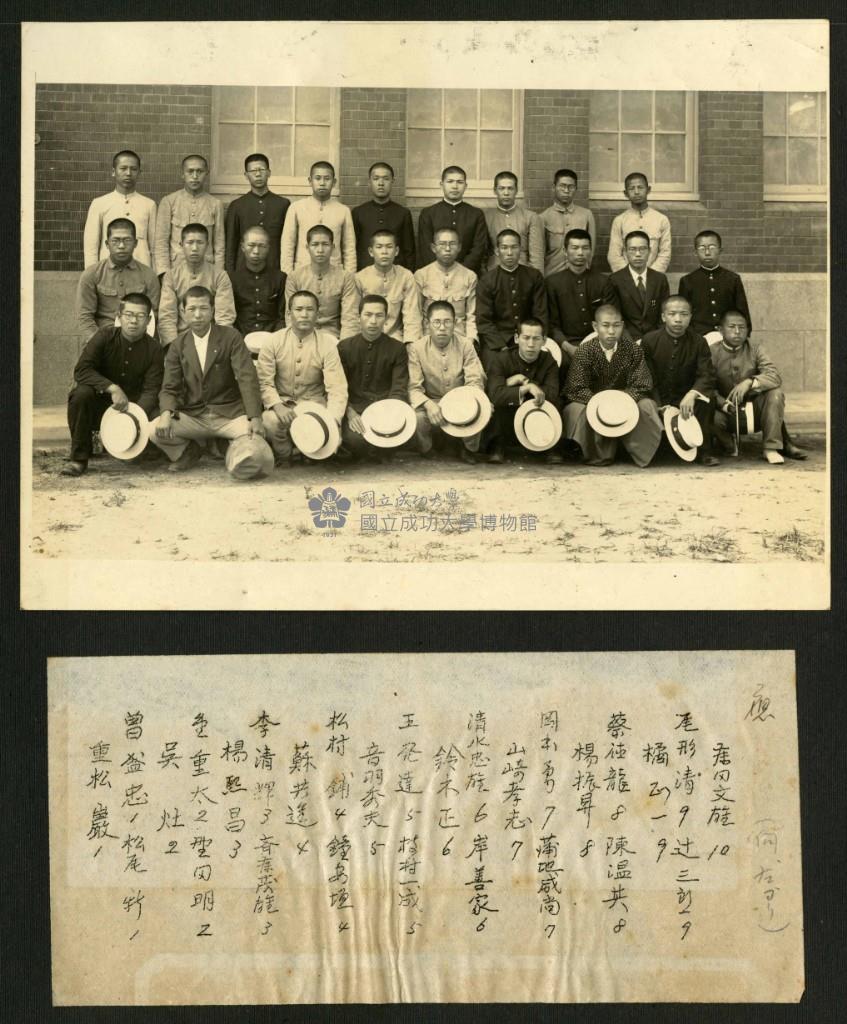 國立成功大學
國立成功大學博物館
1931
應
(向右より)
文雄 10
尾形清 9 辻三郎 9
橘 正一 9
蔡德龍 8 陳温共 8
楊振昇 8
岡本勇 7 蒲地威尚 7
山崎孝志 7
清水忠雄 6 岸善家 6
鈴木正 6
王発達 5 枝村一成 5
音羽秀夫 5
松村 鋪 4 鐘安垣 4
蘇共遠 4
李清輝 3 斉藤茂雄 3
楊熙昌 3
重太 2 明 2
吳 灶 2
曽盛忠 1 松尾 新 1
重松 巖 1